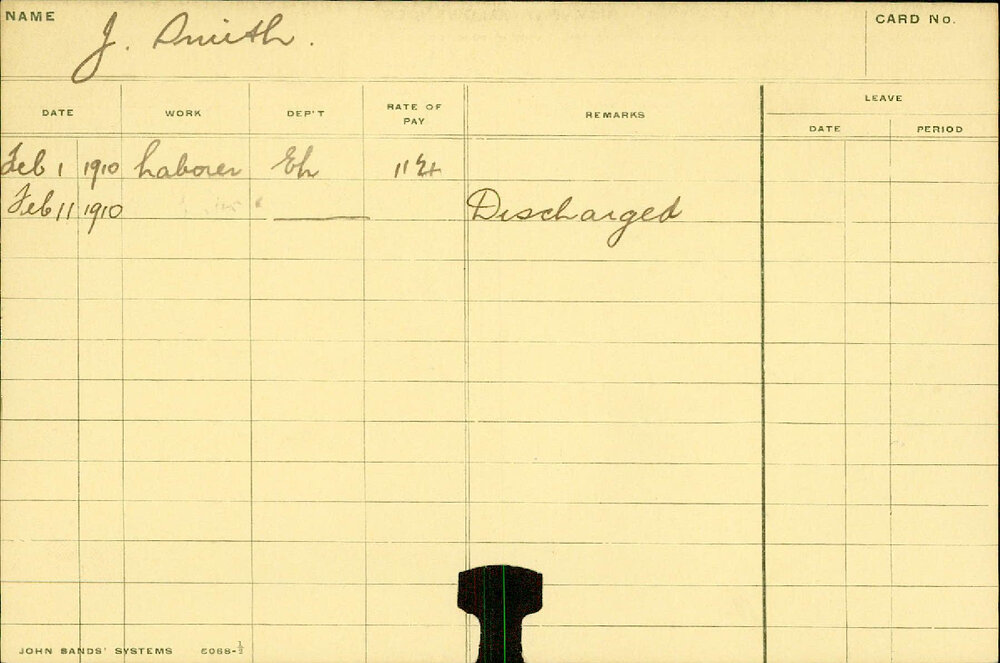 NAME J. Smith. CARD No.
DATE WORK DEP'T RATE OF PAY REMARKS LEAVE
DATE PERIOD
Feb 1 1910 Laborer
Feb 11 1910 Discharged
JOHN SANDS' SYSTEMS